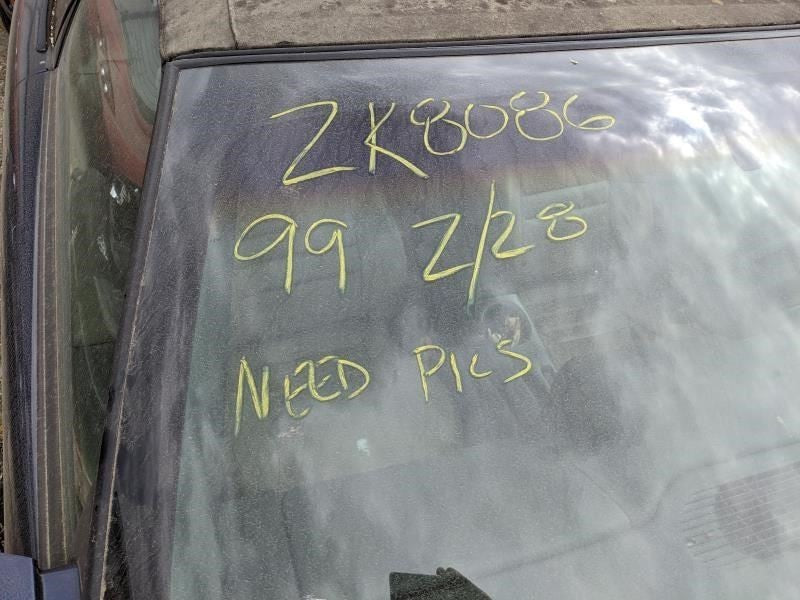 ZK8086
99 Z/28
NEED PICS